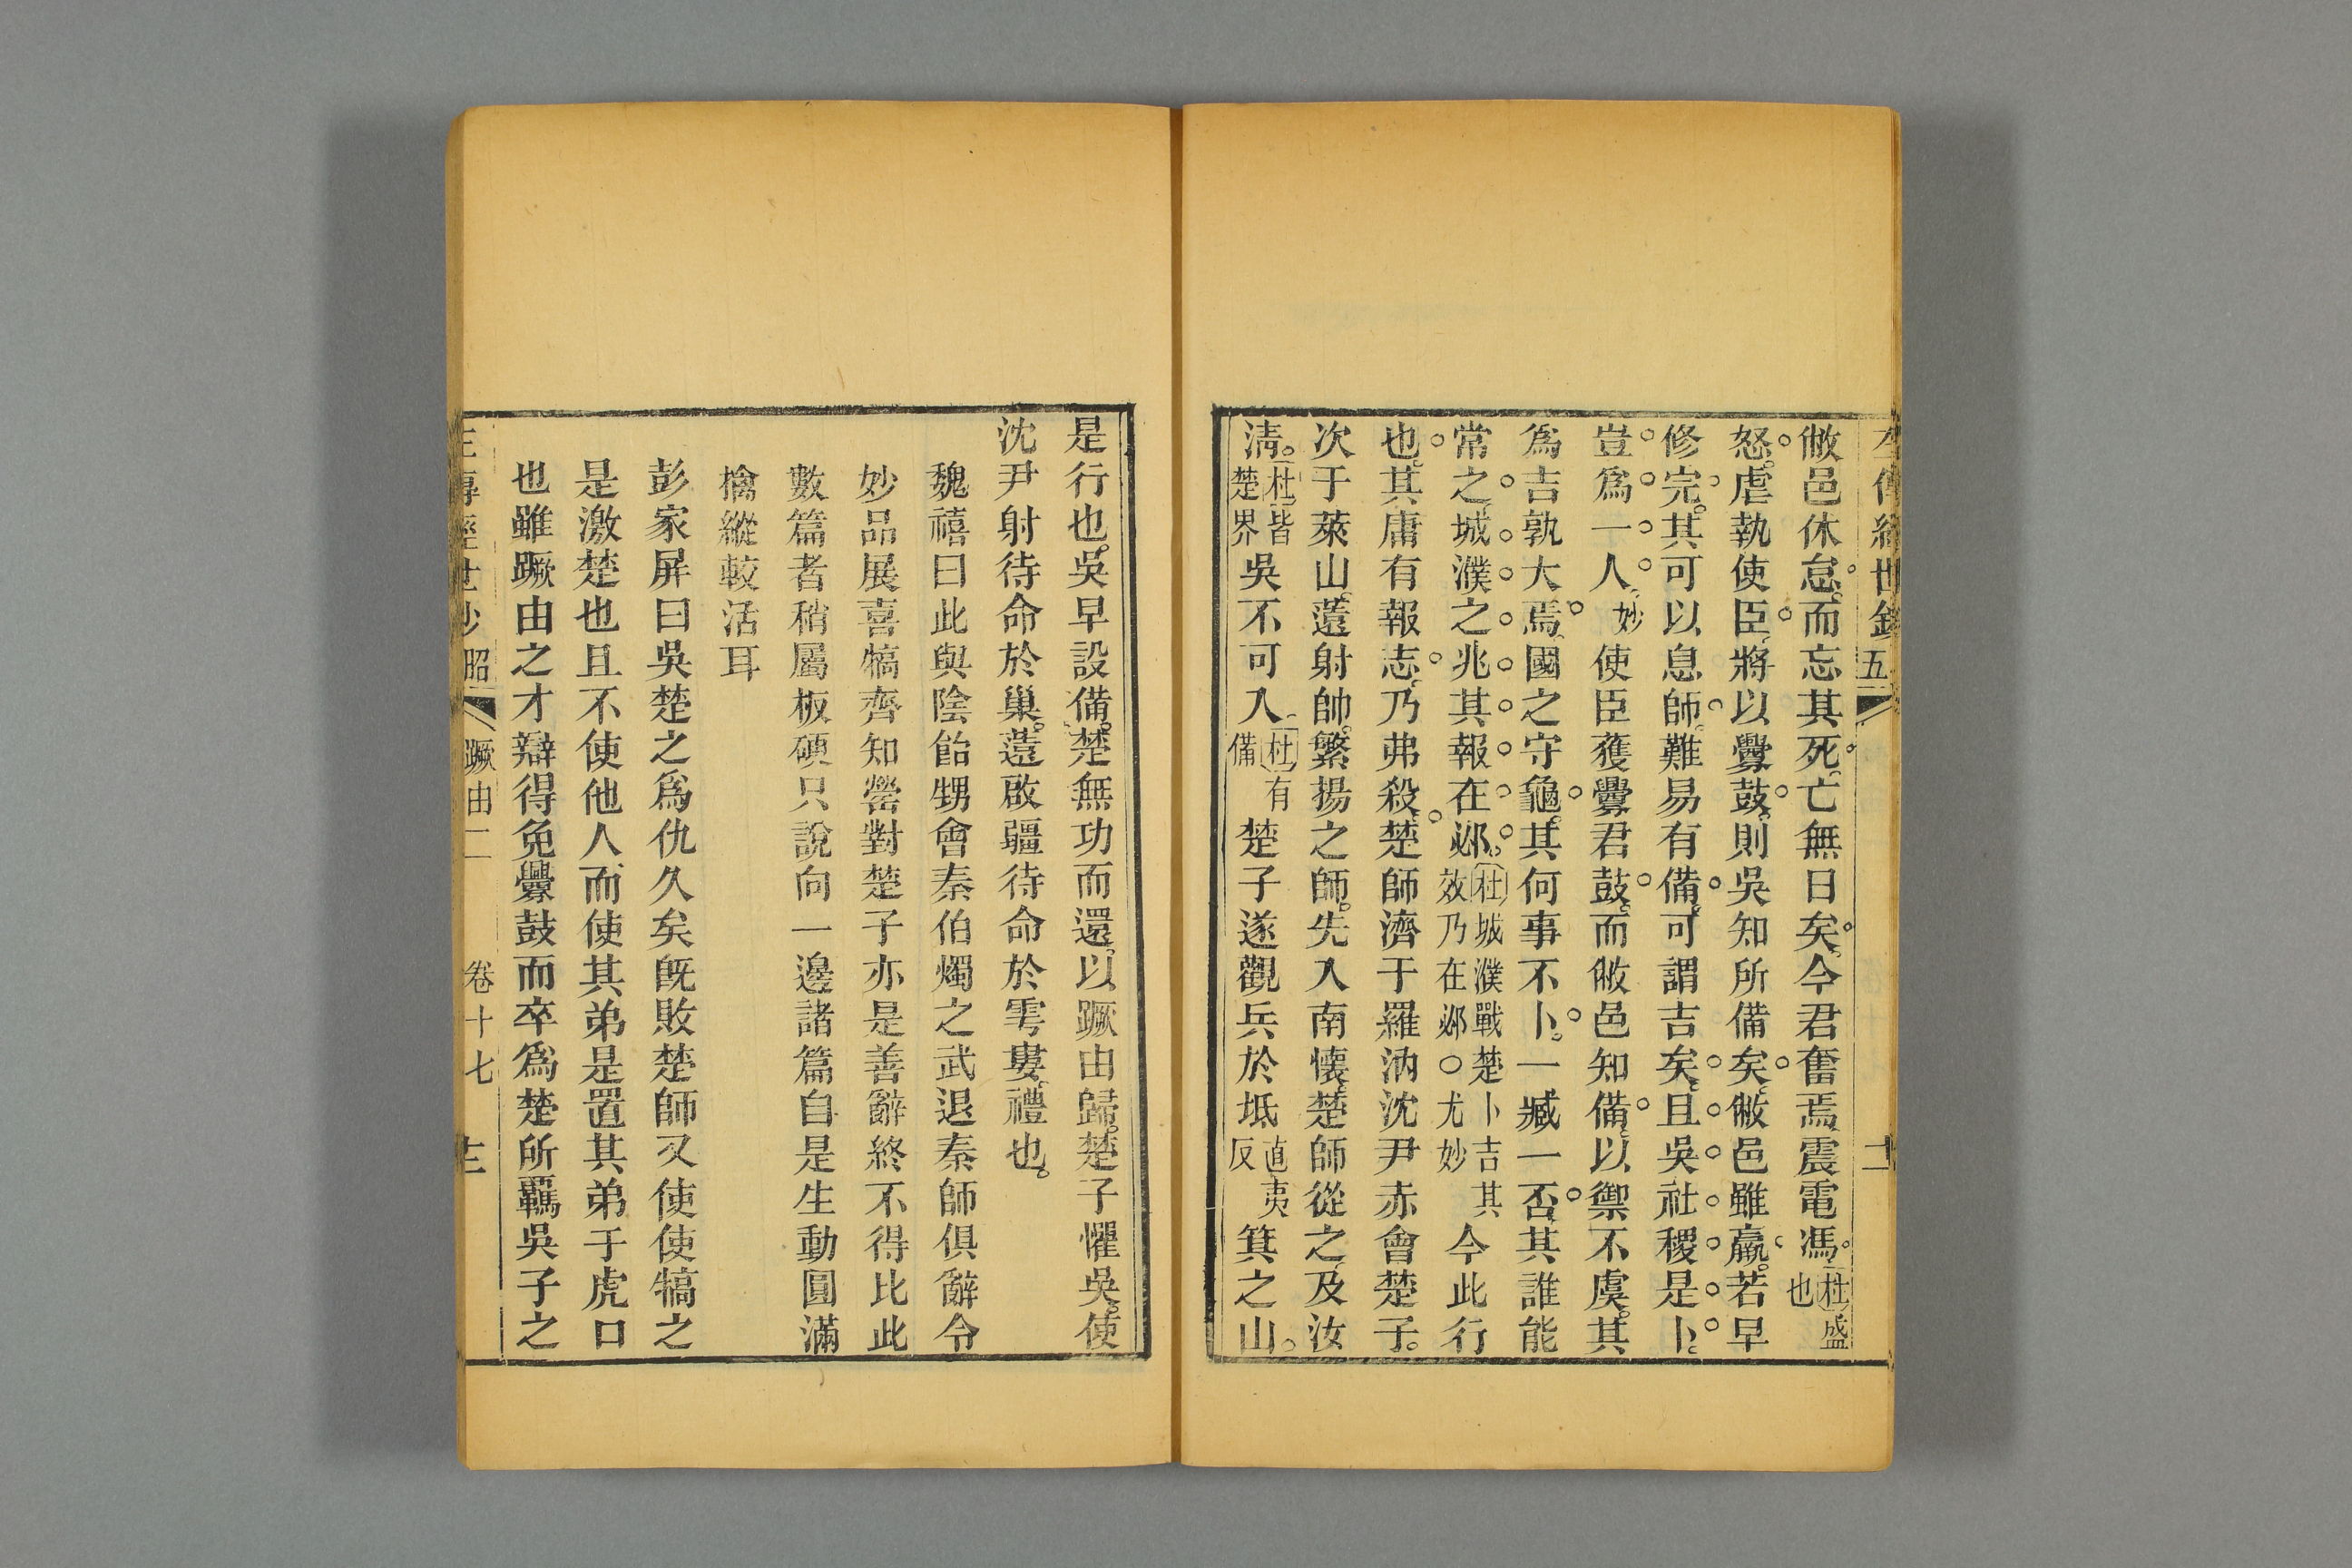 敝邑休怠而忘其死亡無日矣今君奮焉震電馮杜盛也
怒虐執使臣將以釁鼓則吳知所備矣敝邑雖羸若早
修完其可以息師難易有備可謂吉矣且吳社稷是卜
豈爲一人妙使臣獲釁君鼓而敝邑知備以禦不虞其
爲吉孰大焉國之守龜其何事不卜一臧一否其誰能
常之城濮之兆其報在邲杜城濮戰楚卜吉其效乃在邲○尤妙今此行
也其庸有報志乃弗殺楚師濟于羅汭沈尹赤會楚子
次于萊山薳射帥繁揚之師先入南懷楚師從之及汝
淸杜皆楚界吳不可入杜有備楚子遂觀兵於坻直夷反箕之山
是行也吳早設備楚無功而還以蹶由歸楚子懼吳使
沈尹射待命於巢薳啟疆待命於雩婁禮也
魏禧曰此與陰飴甥會秦伯燭之武退秦師俱辭令
妙品展喜犒齊知罃對楚子亦是善辭終不得比此
數篇者稍屬板硬只說向一邊諸篇自是生動圓滿
擒縱較活耳
彭家屏曰吳楚之爲仇久矣旣敗楚師又使使犒之
是激楚也且不使他人而使其弟是置其弟于虎口
也雖蹶由之才辯得免釁鼓而卒爲楚所羈吳子之
昭 蹶由二 卷十七